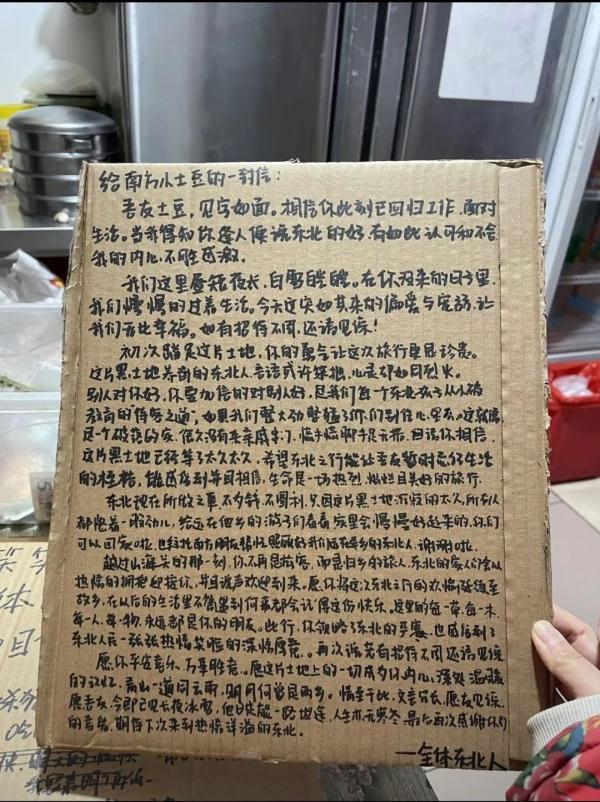 给南方小土豆的一封信：
吾友土豆，见字如面。相信你此刻已回归工作，面对
生活。当我得知你逢人便说东北的好，有如此认可和不舍
我的内心，不胜感激。
我们这里昼短夜长，白雪皑皑。在你没来的日子里，
我们慢慢的过着生活。今天这突如其来的偏爱与宠溺，让
我们无比幸福。如有招待不周，还请见谅！
初次踏足这片土地，你的勇气让这次旅行更显珍贵。
这片黑土地养育的东北人，言语或许粗犷，心灵却如同烈火。
别人对你好，你要加倍的对别人好，是我们每一个东北孩子从小被
教育的待客之道，如果我们整大劲 你们别往心
是一个破落的家，很久没有来亲戚串门，
这片黑土地已经等了太久太久，希望东北之行能让吾友暂时忘却生活
的桎梏，能感受到并且相信，生命是一场热烈，灿烂且美好的旅行。
东北现在所做之事，不为钱，不图利，只因这片黑土地沉寂的太久，所有人
都憋着一股劲儿，给远在他乡的游子们看看，家里会慢慢好起来的，你们
可以回家啦，也拜托南方朋友帮忙照顾好我们远在异乡的东北人，谢谢啦。
越过山海关的那一刻，你不再是旅客，而是归乡的旅人，东北的家人们会以
热情的拥抱迎接你，并且说声欢迎到来。愿你将这次东北之行的欢愉延续至
故乡，在以后的生活里不管遇到何事都会记得这份快乐。这里的每一草，每一木，
每一人，每一物，永远都是你的朋友。此行，你领略了东北的 也感后到了
东北人民一张张热情笑脸的深情厚意。再次说若有招待不周还请见谅
愿你平安喜乐，万事胜意。愿这片土地上的一切成为你内心，深处温暖
的记忆。青山一道同云雨，明月何曾是两乡。情至于此，文言冗长，愿友见谅，
愿吾友，今即已见长夜冰雪，他日定能一路坦途，人生亦无寒冬，最后再次感谢你们
的喜爱，期待下次来到热情洋溢的东北。
一全体东北人